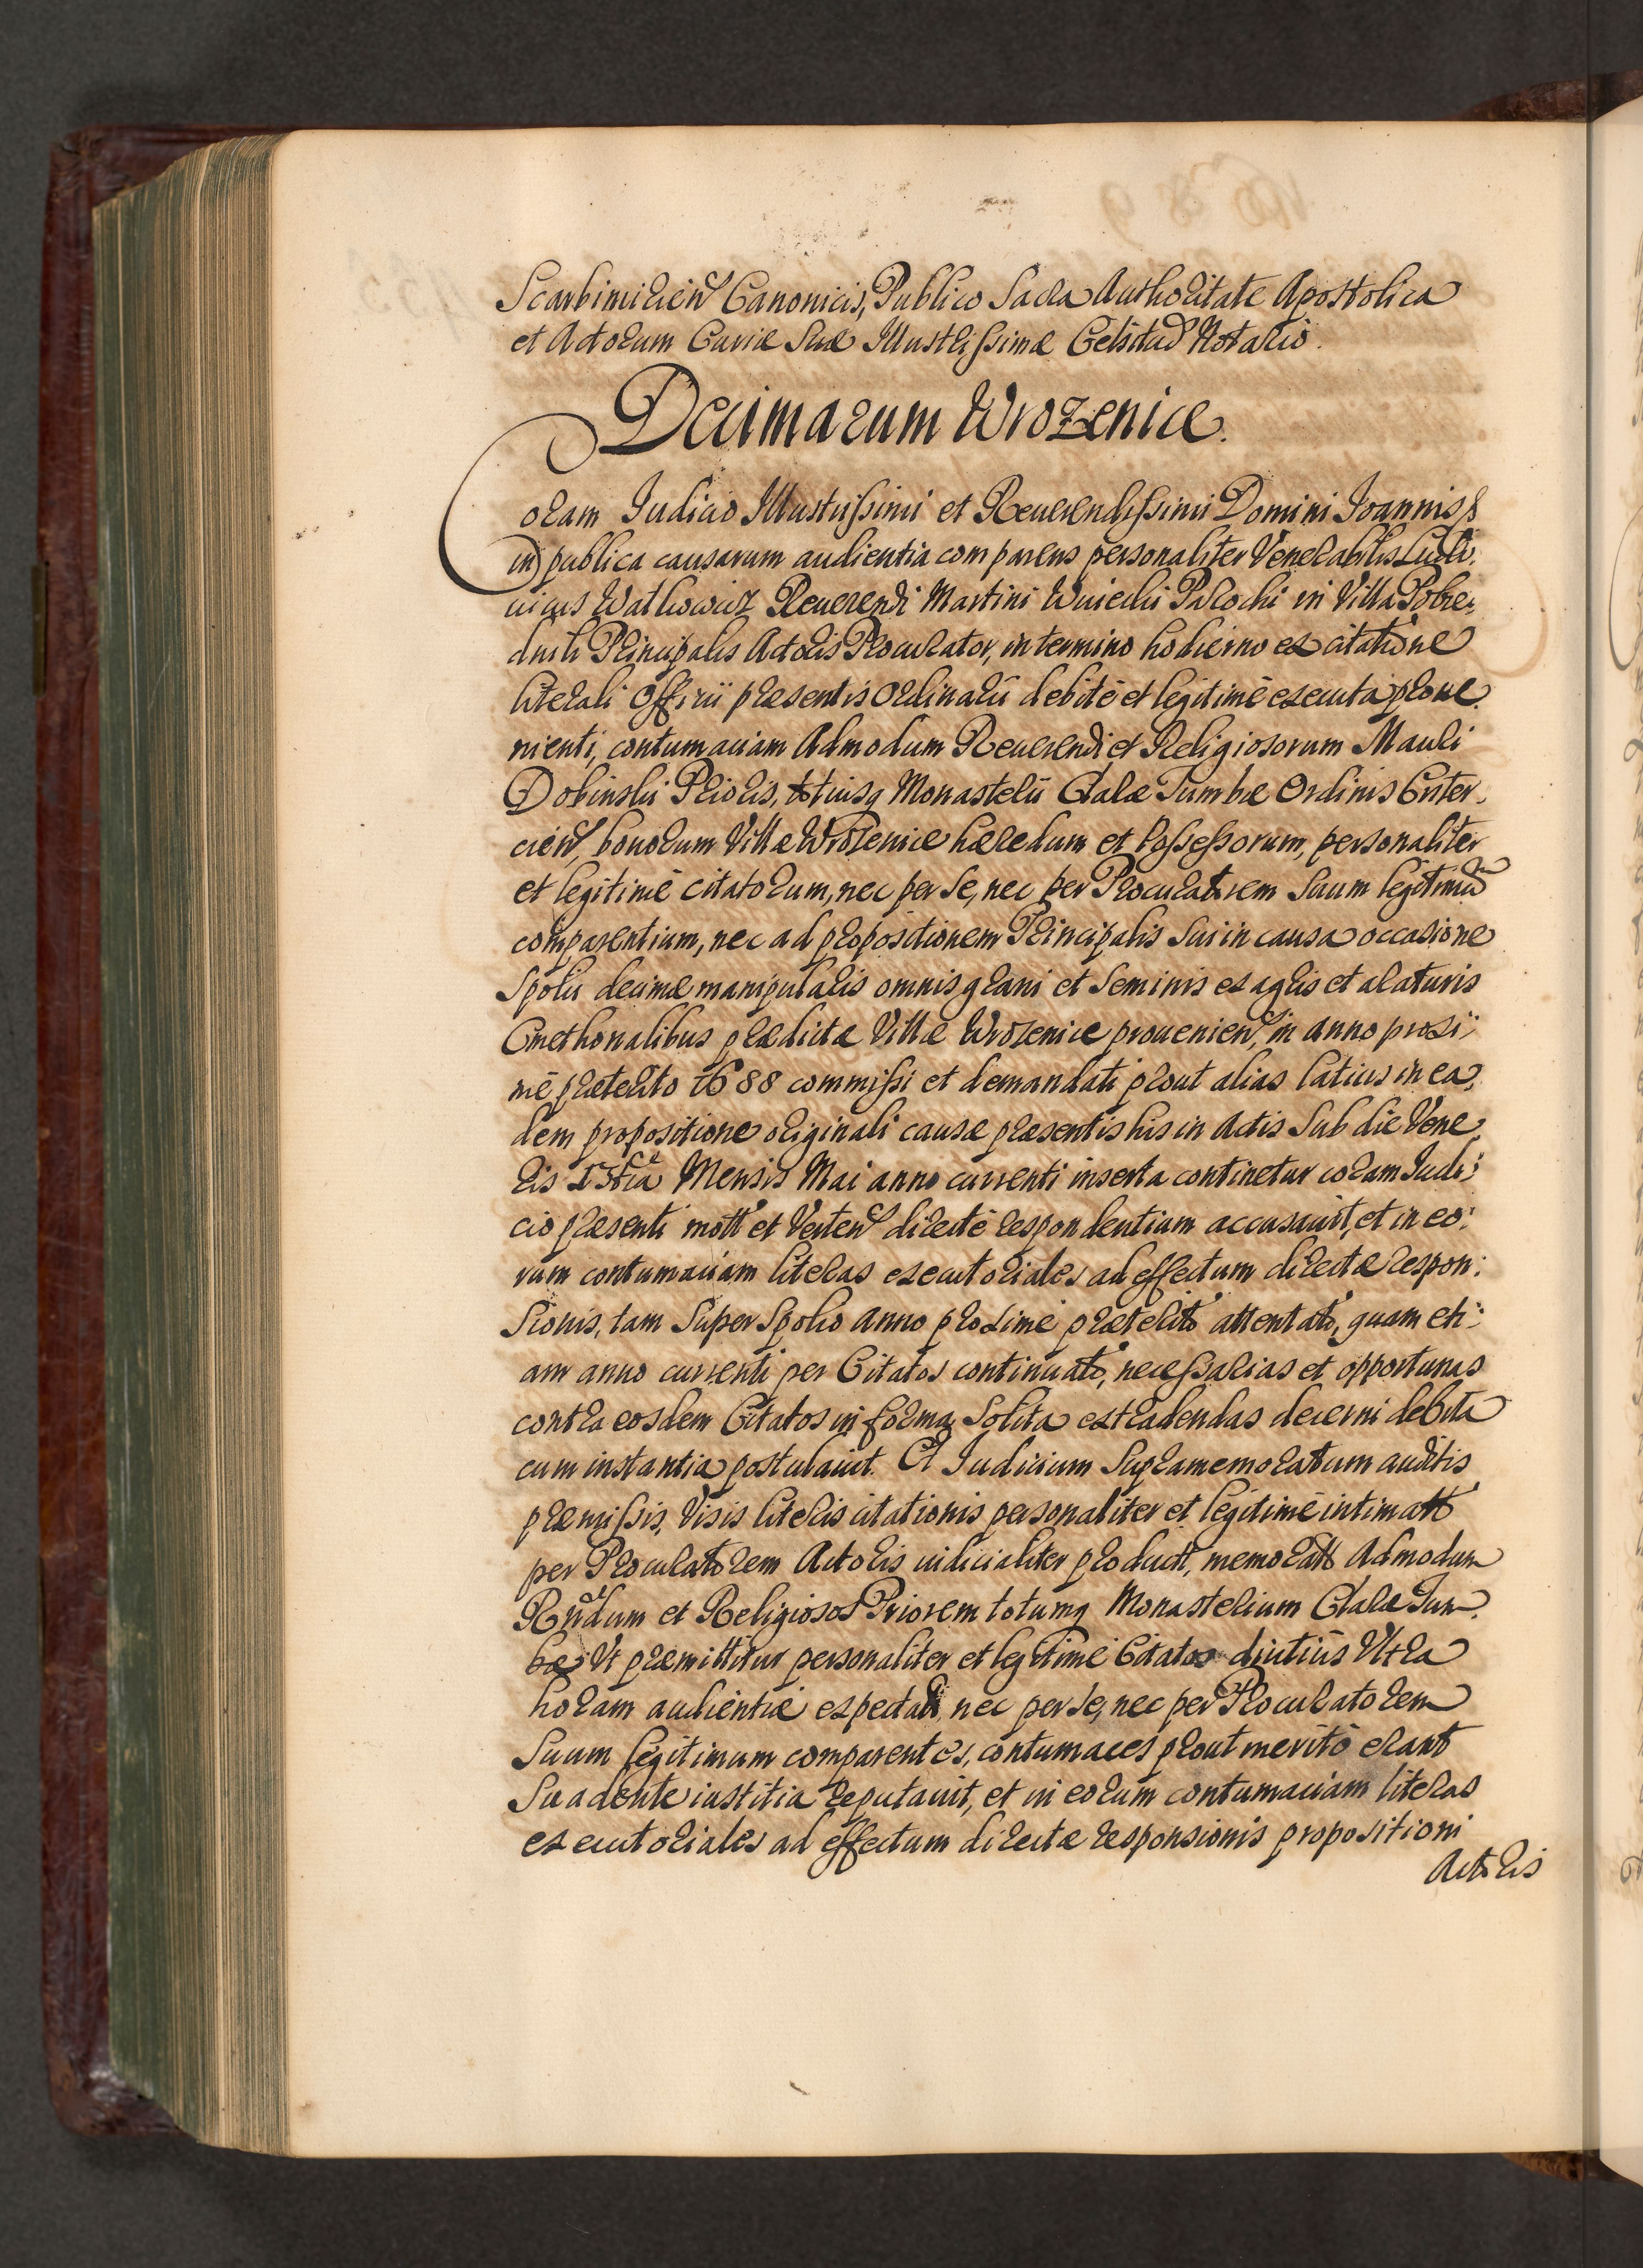 Scarbimirien Canonicis, Publico Sacra Authoritate Apostolica
et Actorum Curiæ Suæ Illustrissimæ Celsitud Notario.
Decimarum Wrozenice.
Coram Iudicio Illustrissimi et Reuerendissimi Domini Ioannis &
in publica causarum audientia comparens personaliter Venerabilis Ludo,
uicus Reuerendi Martini Parochi in Villa Pobie,
dnik Principalis Actoris Procurator, in termino hodierno ex citatione
literali Officii præsentis Ordinarii debitè et legitimè executa proue,
nienti, contumaciam Admodum Reuerendi et Religiosorum Mauri
Dobinski Prioris, totiusq Monasterii Claræ Tumbæ Ordinis Cister,
cien, bonorum Villæ Wrozenice hæredum et Possessorum, personaliter
et legitimè citatorum, nec per se, nec per Procuratorem suum legitimu
comparentium, nec ad propositionem Principalis sui in causa occasione
Spolii decimæ manipularis omnis grani et seminis ex agris et araturis
Cmethonalibus prædictæ Villæ Wrozenice prouenien, in anno proxi,
mè præterito 1688 commissi et demandati prout alias latius in ea,
dem propositione originali causæ præsentis his in Actis sub die Vene,
ris 13tia Mensis Mai anno currenti inserta continetur coram Iudi,
cio præsenti mott et Verten directè respondentium accusauit, et in eo,
rum contumaciam literas executoriales ad effectum directæ respon,
sionis, tam super Spolio anno proximè præterito attentato, quam eti,
am anno currenti per Citatos continuato, necessarias et opportunas
contra eosdem Citatos in forma solita extradendas decerni debita
cum instantia postulauit. Et Iudicium supramemoratum auditis
præmissis, Visis literis citationis personaliter et legitimè intimatt
per Procuratorem Actoris iudicialiter productt, memoratt Admodum
Rndum et Religiosos Priorem totumq Monasterium Claræ Tum,
bæ Vt præmittitur personaliter et legitimè Citatos diutiùs Vltra
horam audientiæ expectatt, nec per se, nec per Procuratorem
Suum legitimum comparentes, contumaces prout meritò erant
Suadente iustitia reputauit, et in eorum contumaciam literas
executoriales ad effectum directæ responsionis propositioni
Actoris